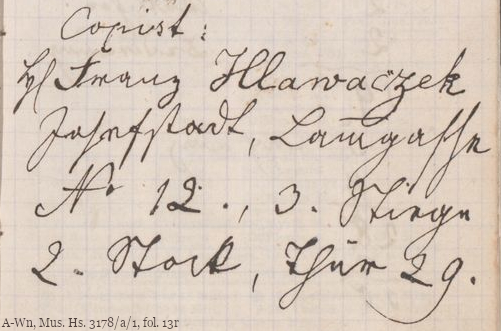 Copist:
H Franz Hlawaczek
Josefstadt, Lam̅gasse
No 12., 3. Stiege
2. Stock, Thür 29.
A-Wn, Mus. Hs. 3178/a/1, fol. 13r